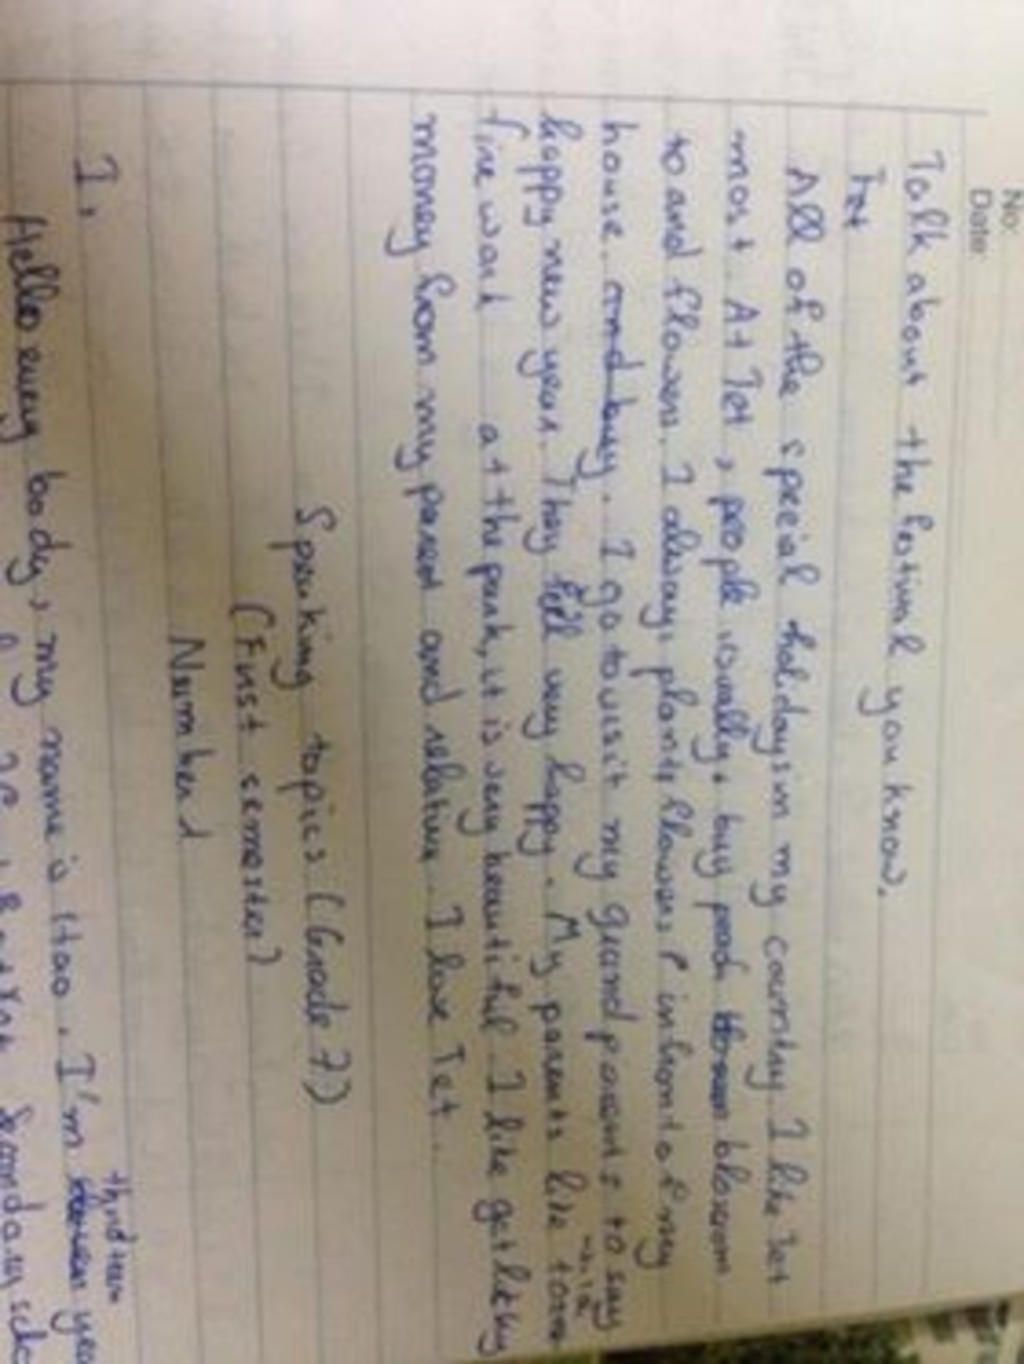 No:
Date:
Talk about the festival you know.
Tet
All of the special holidays in my country I like Tet
most. At Tet, people usually buy peach blossom
to and flowers. I always plants flowers in front of my
house. and buy. I go to visit my grand parents to say
happy new year. They feel very happy. My parents like
fire work at the park, it is very beautiful I like get lucky
money from my parent and relative. I love Tet.
Speaking topics (Grade 7))
(First semester)
Number 1
1,
thirdteen
Hello every body, my name is Hao. I'm
Secondary